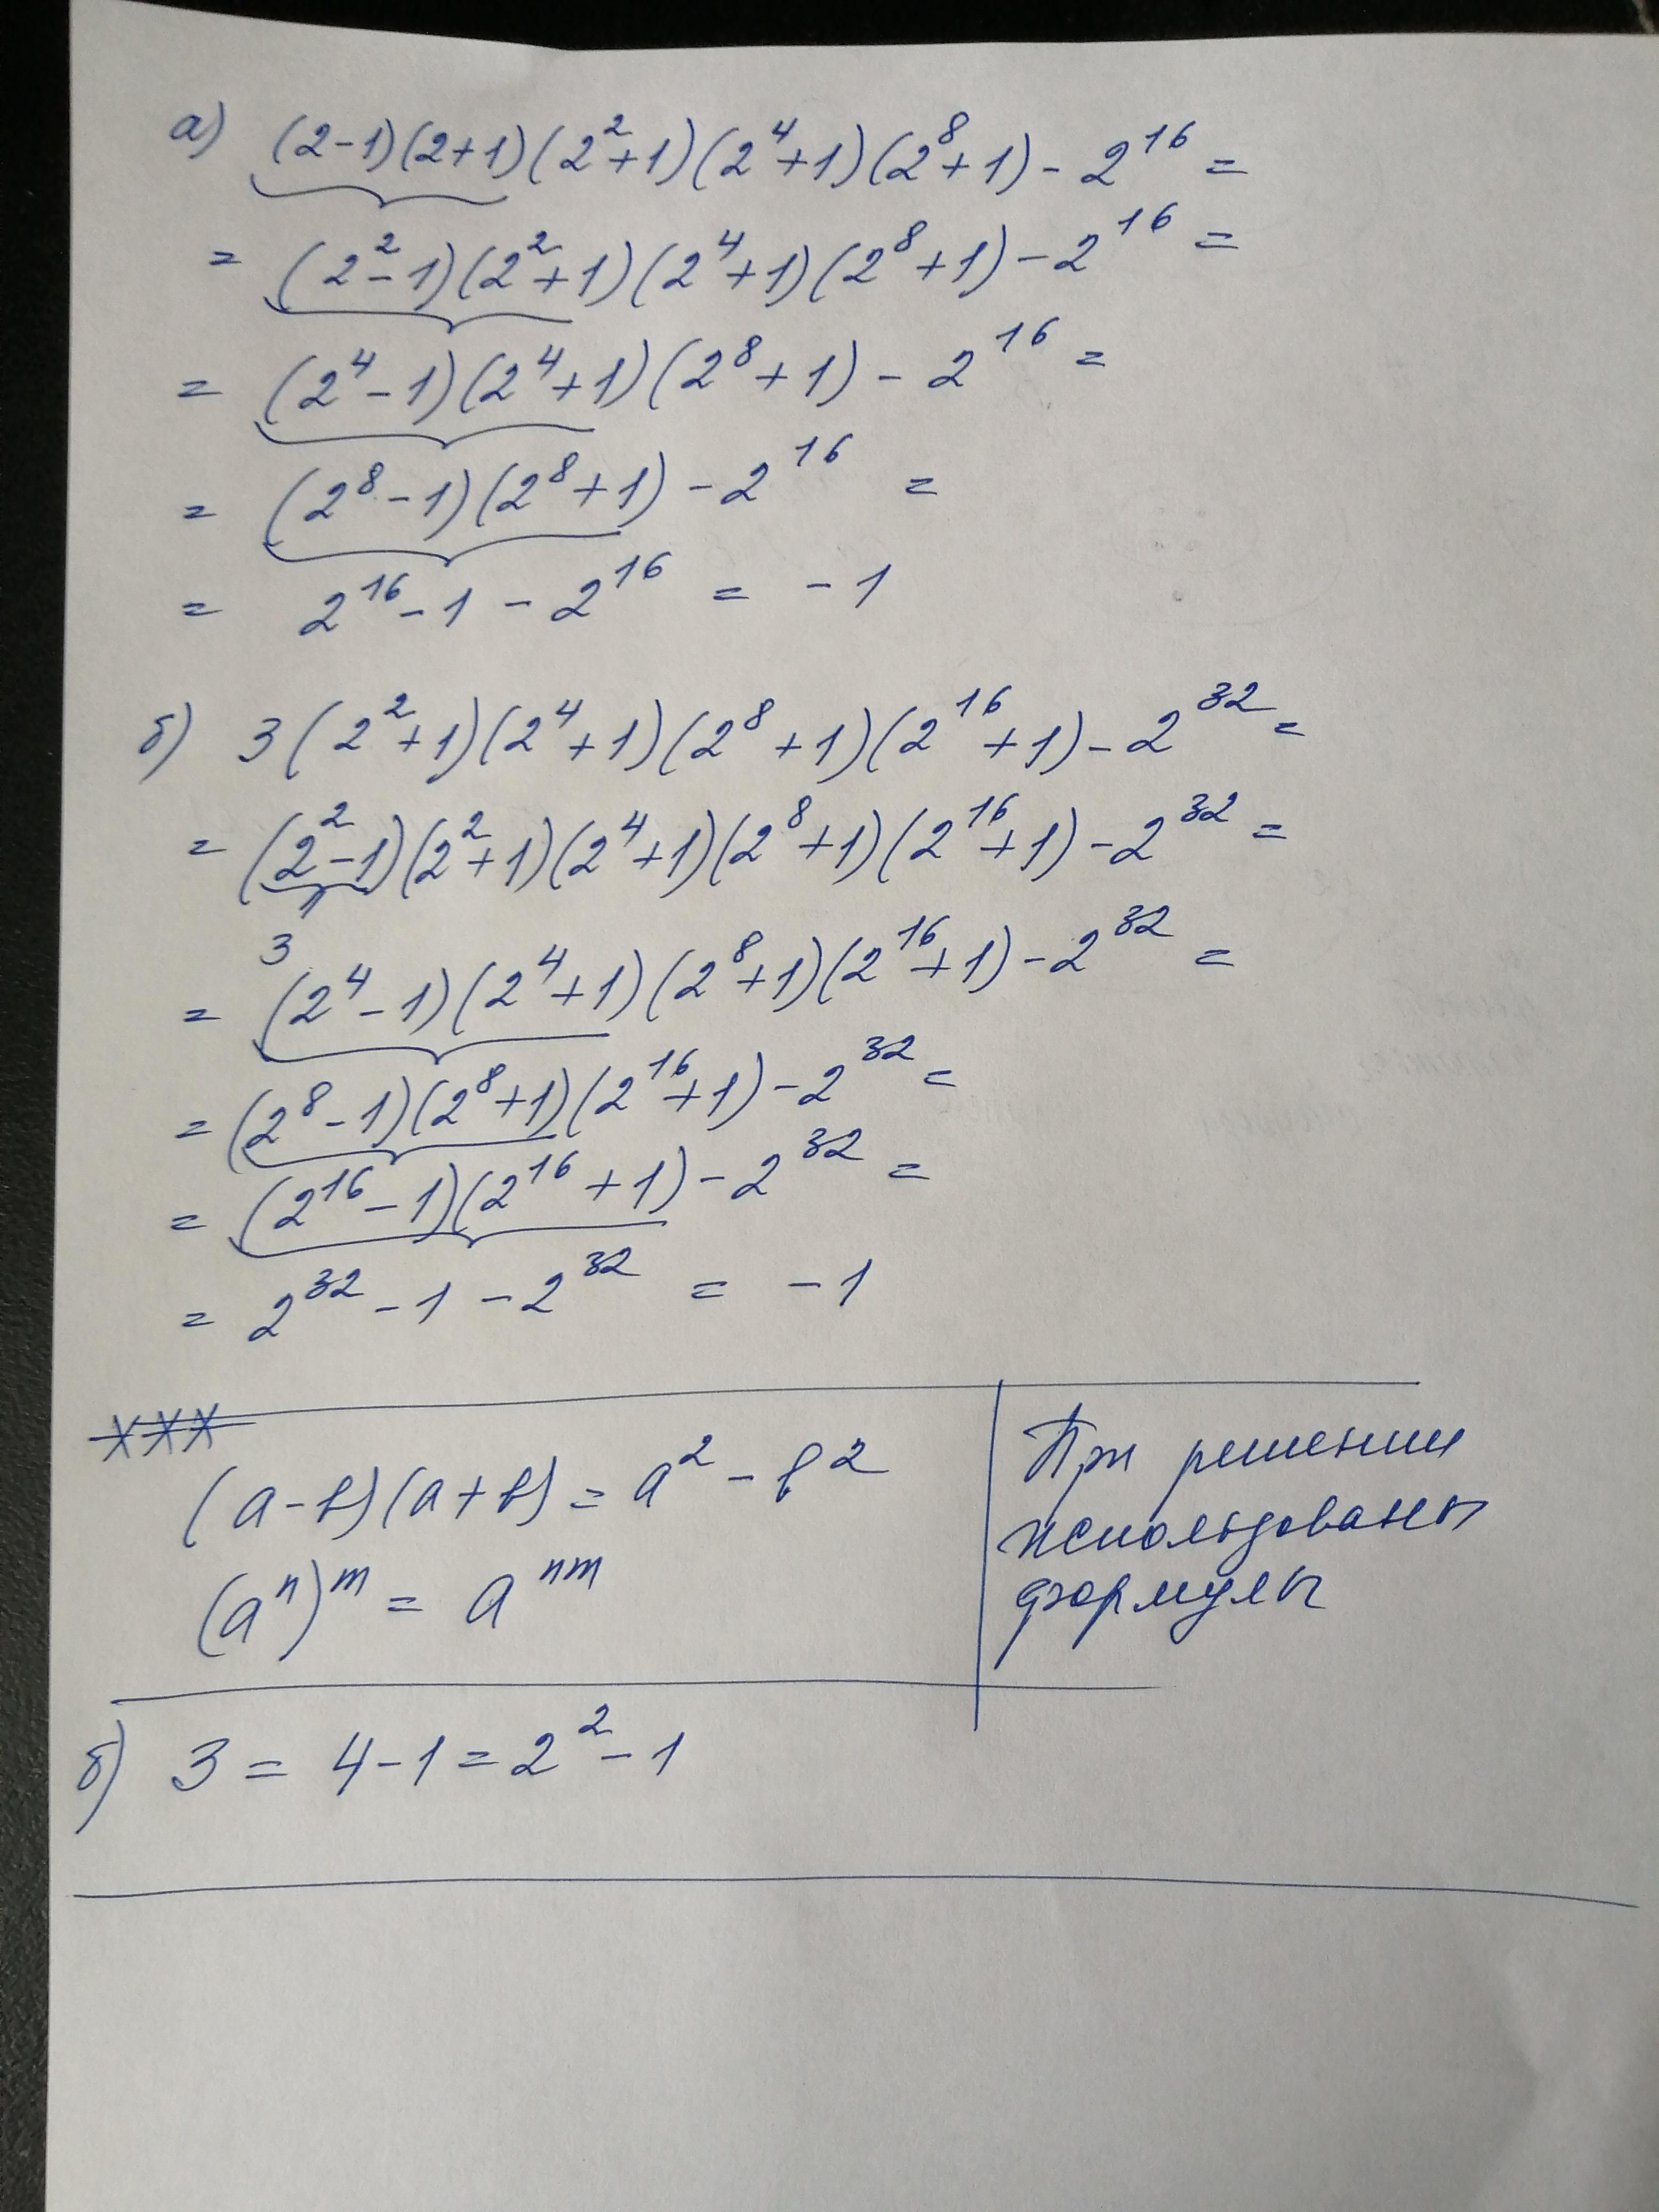 а) (2-1)(2+1)(2²+1)(2⁴+1)(2⁸+1) - 2¹⁶ =
= (2²-1)(2²+1)(2⁴+1)(2⁸+1) - 2¹⁶ =
= (2⁴-1)(2⁴+1)(2⁸+1) - 2¹⁶ =
= (2⁸-1)(2⁸+1) - 2¹⁶ =
= 2¹⁶ - 1 - 2¹⁶ = -1
б) 3(2²+1)(2⁴+1)(2⁸+1)(2¹⁶+1) - 2³² =
= (2²-1)(2²+1)(2⁴+1)(2⁸+1)(2¹⁶+1) - 2³² =
3
= (2⁴-1)(2⁴+1)(2⁸+1)(2¹⁶+1) - 2³² =
= (2⁸-1)(2⁸+1)(2¹⁶+1) - 2³² =
= (2¹⁶-1)(2¹⁶+1) - 2³² =
= 2³² - 1 - 2³² = -1
(a-b)(a+b) = a² - b²
(aⁿ)ᵐ = aⁿᵐ
При решении
использованы
формулы
б) 3 = 4-1 = 2²-1